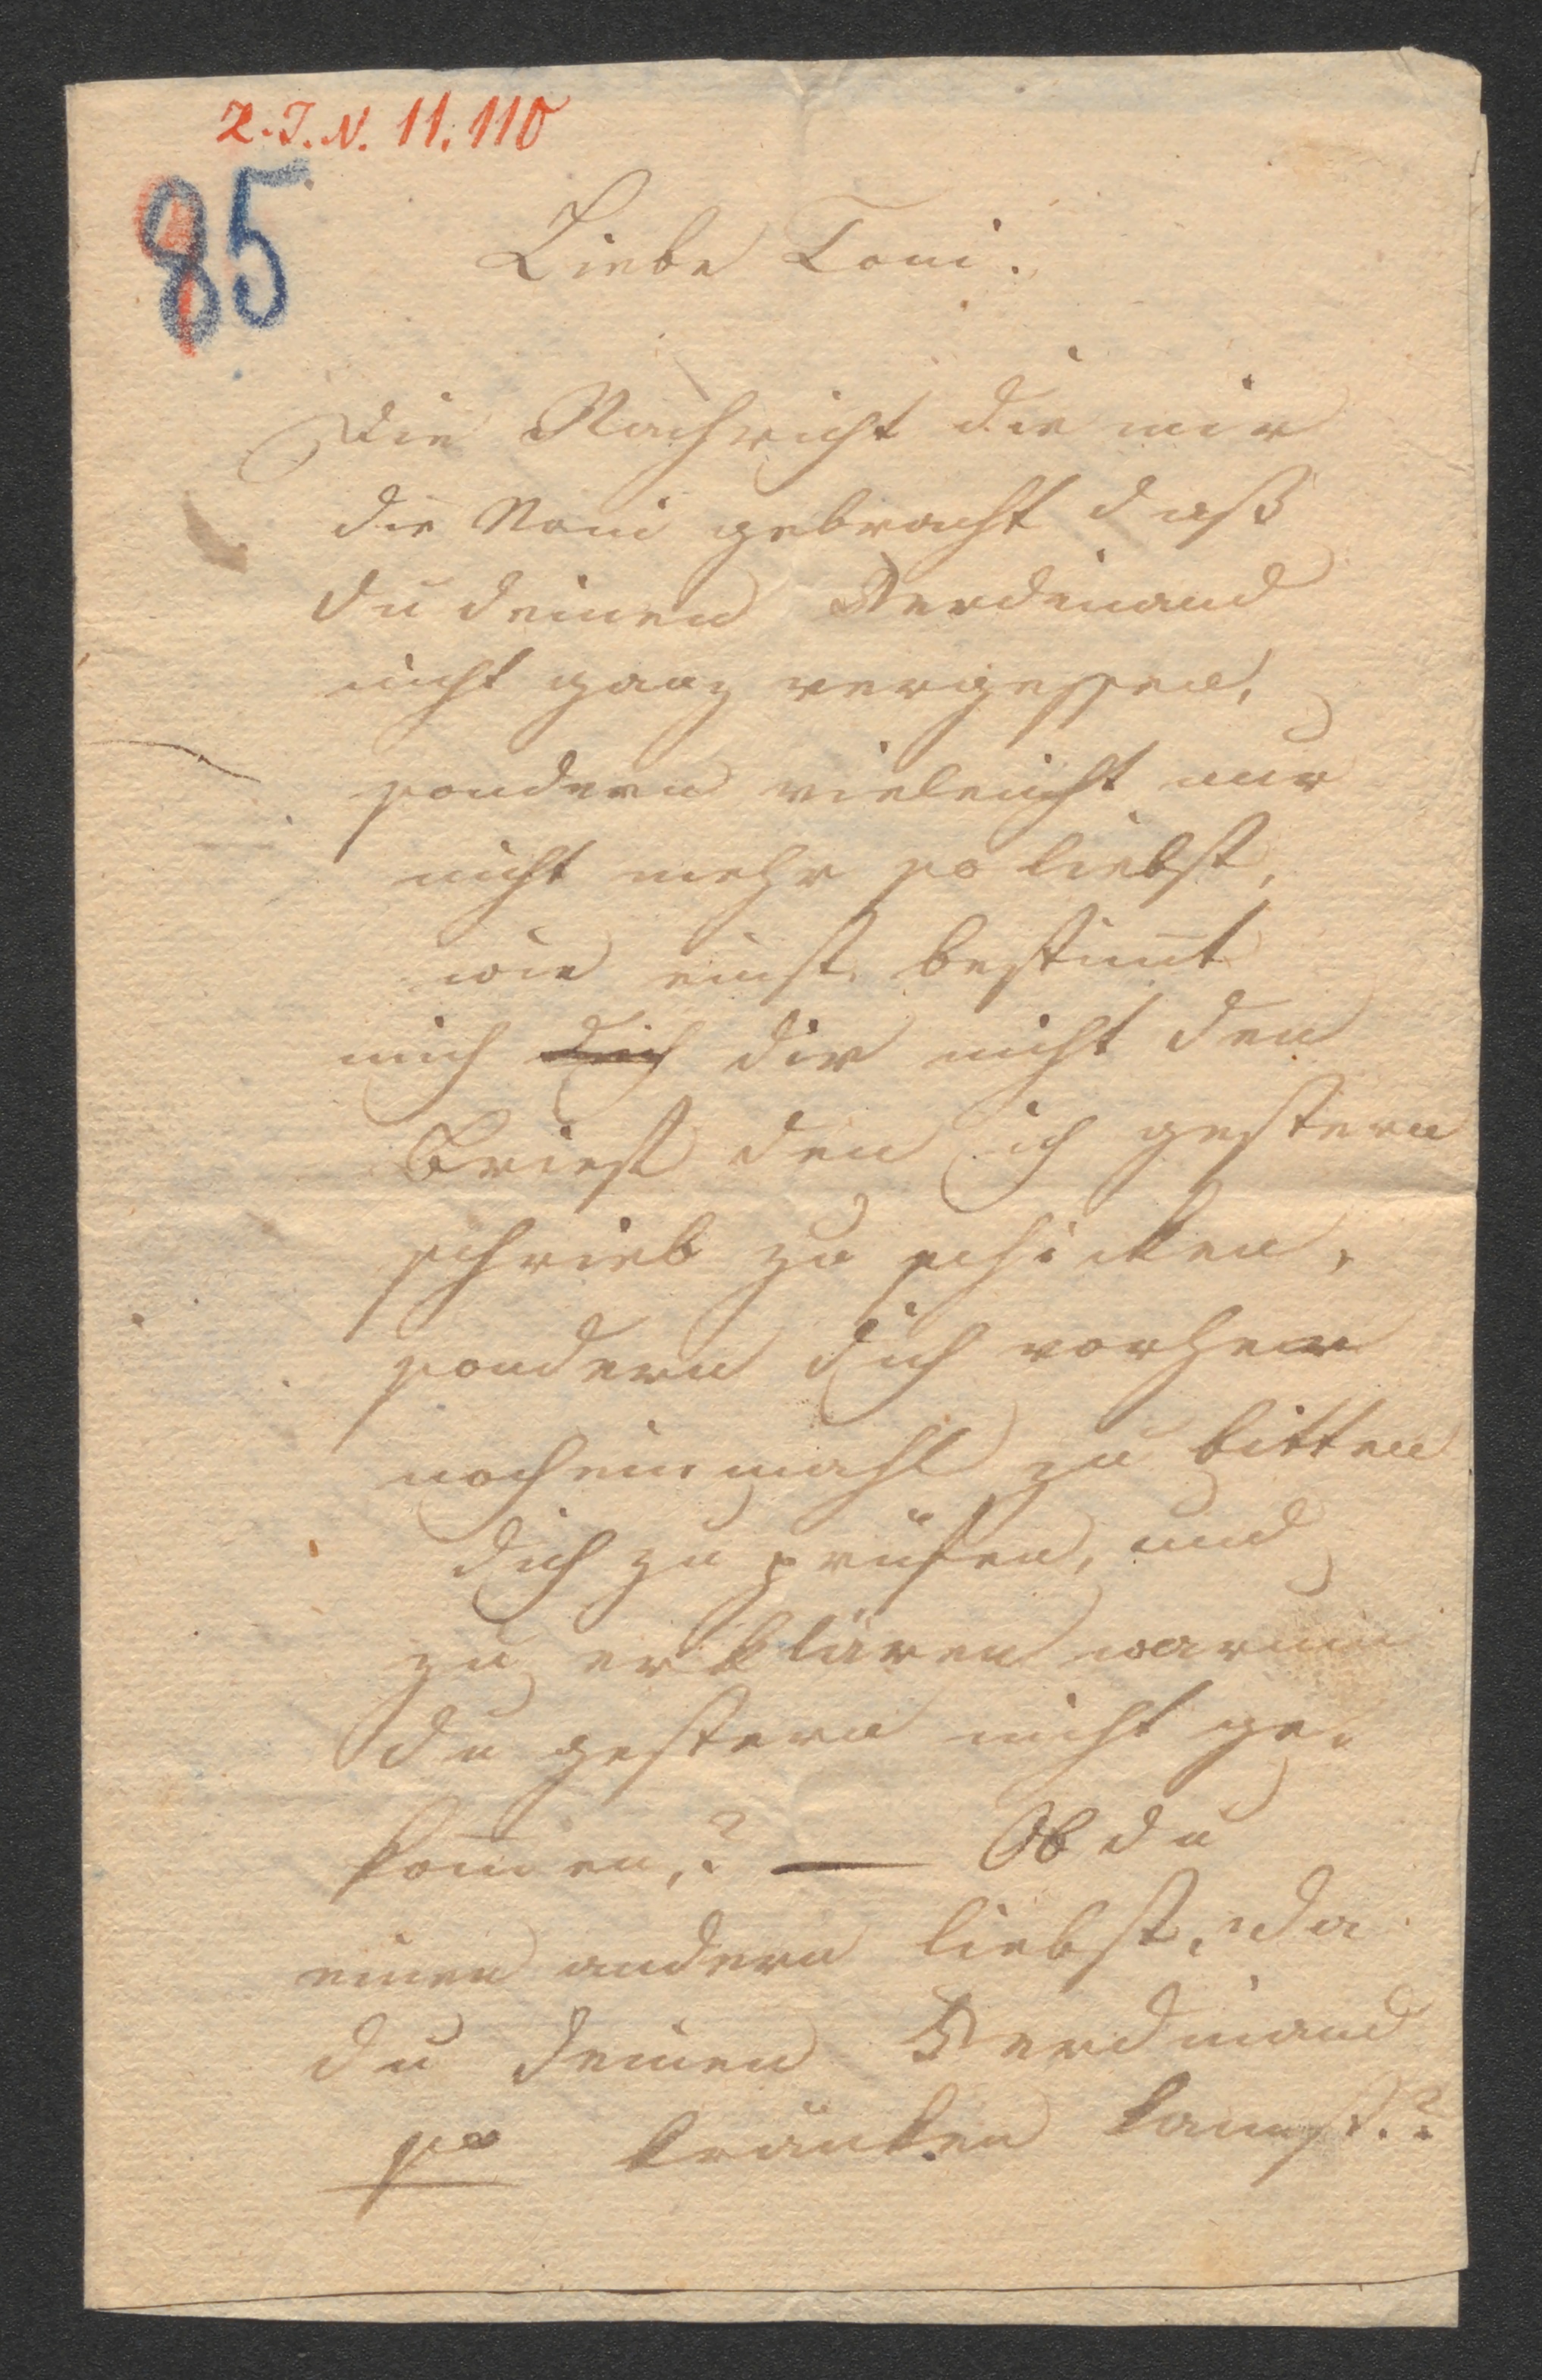 Z.I.N. 11.110
85
Liebe Toni.
Die Nachricht die mir
die Nani gebracht daß
du deinen Ferdinand
nicht ganz vergessen,
sondern vieleicht nur
nicht mehr so liebst,
wie einst, bestim̅t
mich dich dir nicht den
Brief den ich gestern
schrieb zu schicken,
sondern dich vorher
noch einmahl zu bitten
dich zu prüfen, und
zu erklären warum
du gestern nicht ge-
kom̅en,? — Ob du
einen andern liebst, da
du deinen Ferdinand
so kränken kannst.?